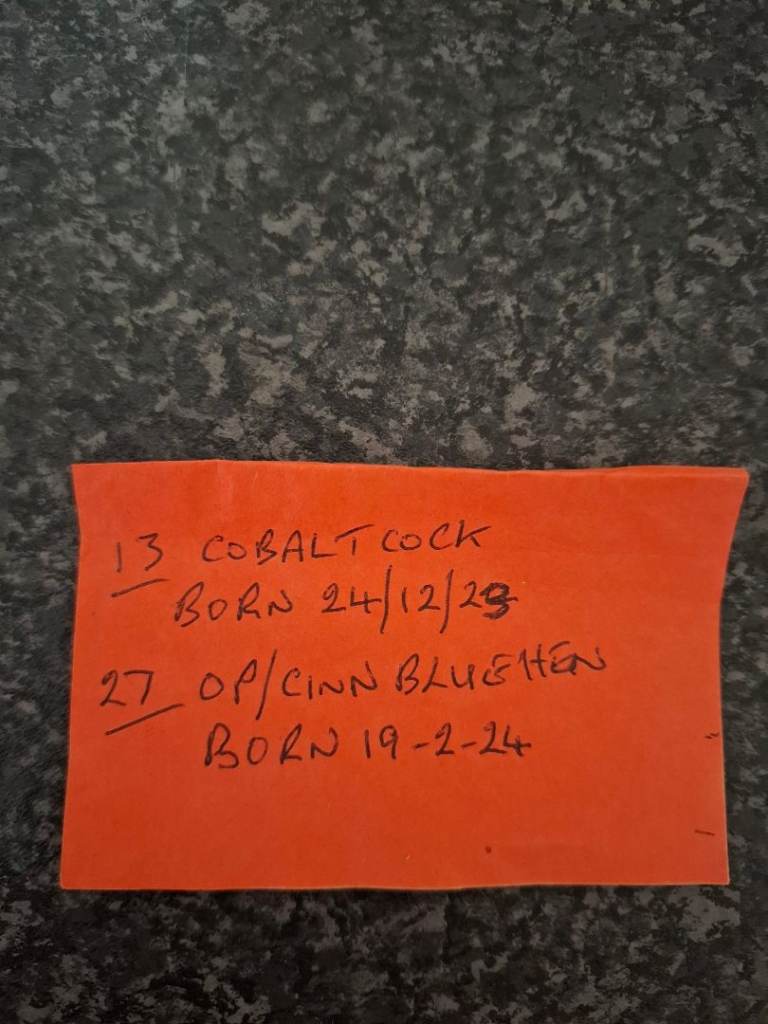 13 COBALT COCK
BORN 24/12/23
27 OP/CINN BLUE HEN
BORN 19-2-24